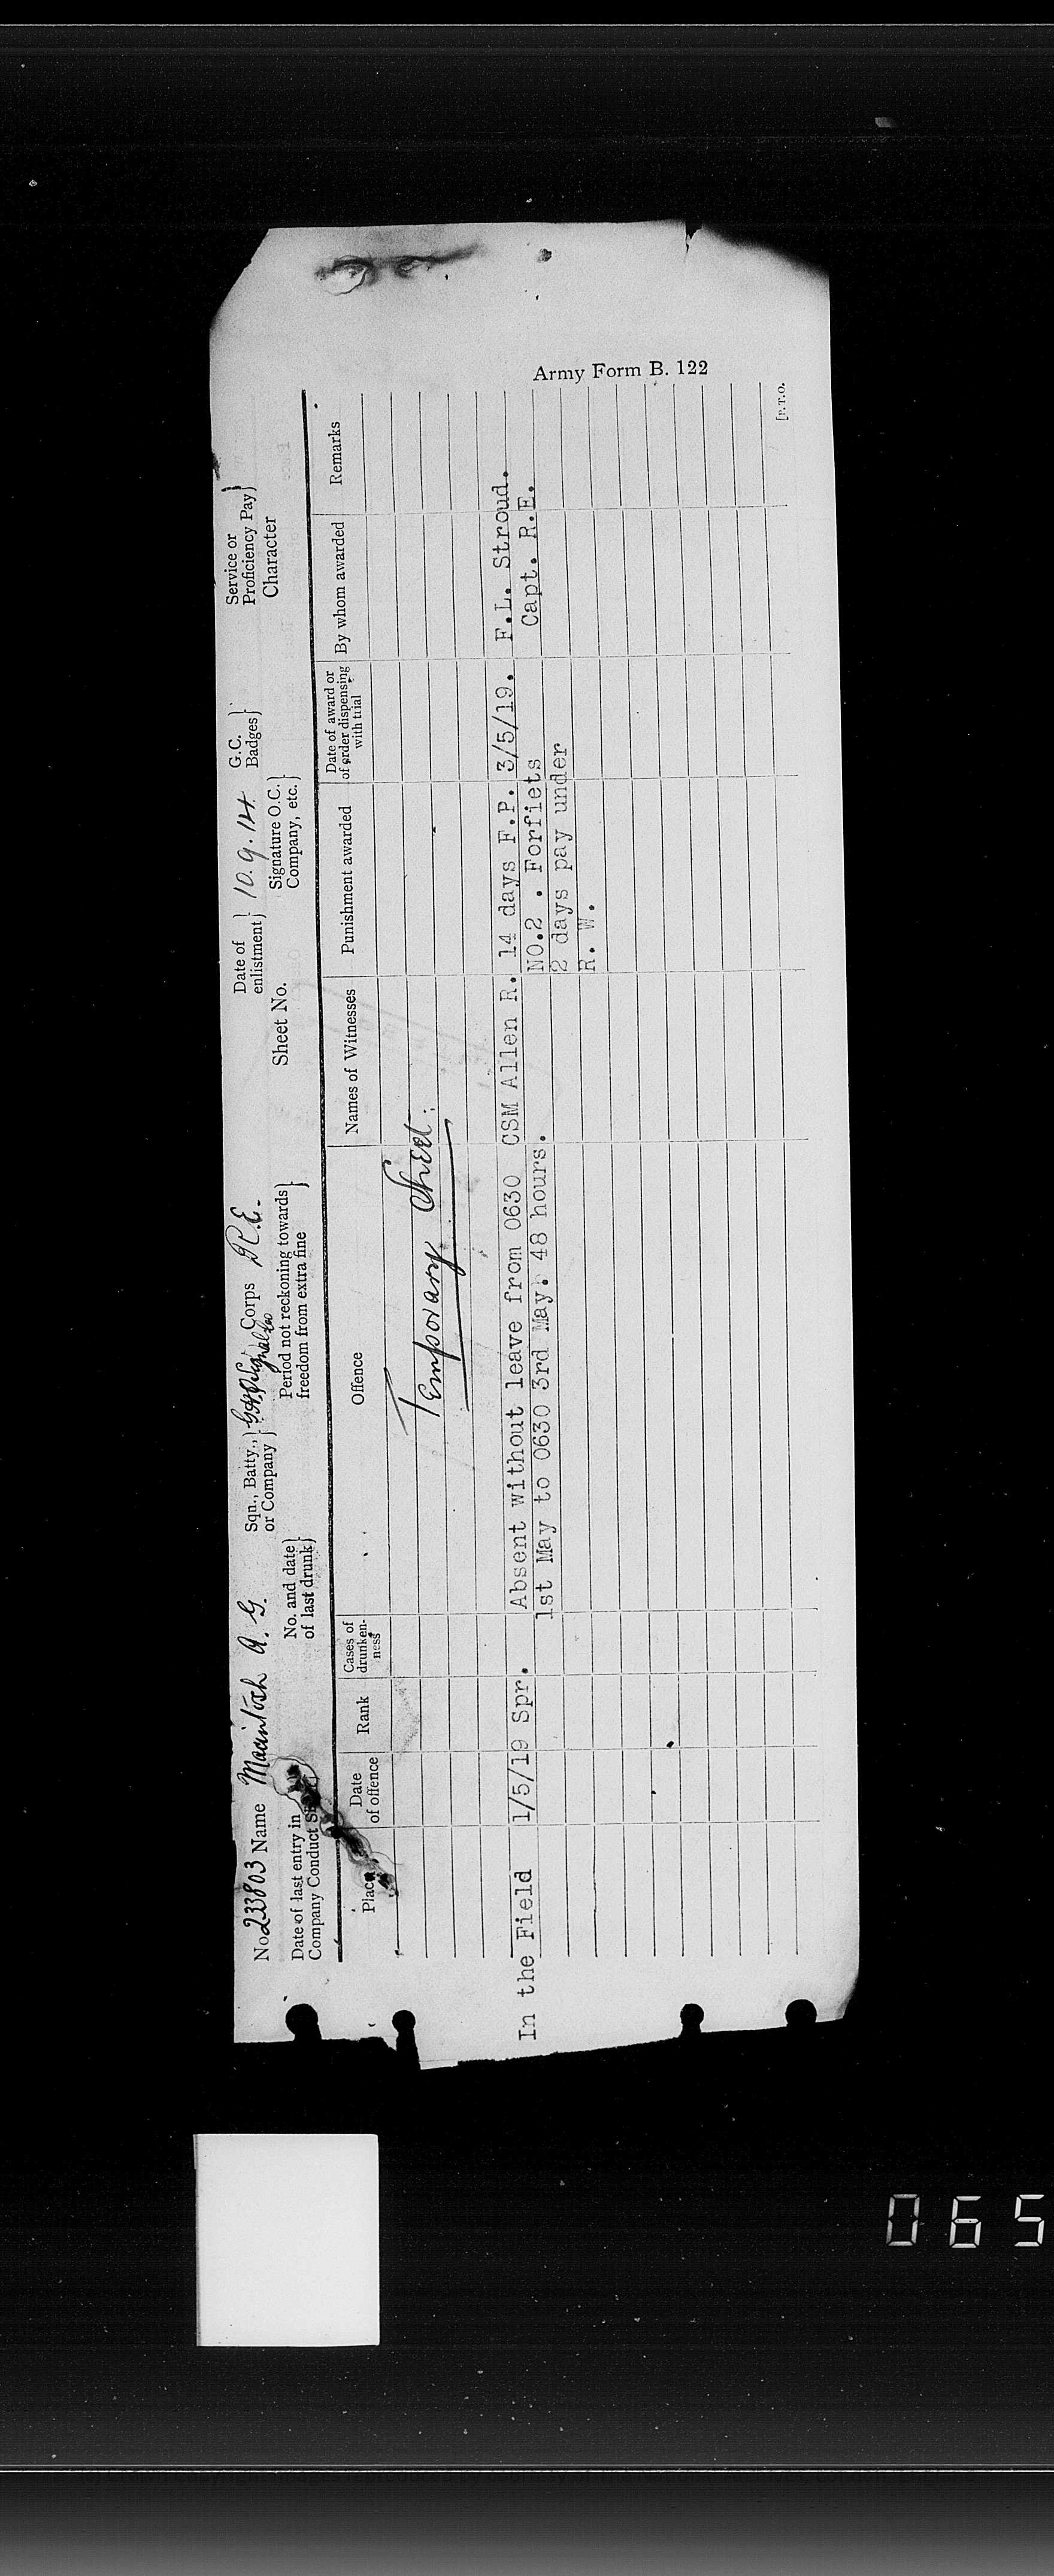 Army Form B. 122
No. 233803 Name Macintosh A. G. Sqn., Batty., or Company Corps R.E. Date of enlistment 10.9.14 G.C. Badges Service or Proficiency Pay
Date of last entry in Company Conduct Sheet No. and date of last drunk Period not reckoning towards freedom from extra fine Sheet No. Signature O.C. Company, etc. Character
Place Date of offence Rank Cases of drunken-ness Offence Names of Witnesses Punishment awarded Date of award or of order dispensing with trial By whom awarded Remarks
Temporary Sheet.
In the Field 1/5/19 Spr. Absent without leave from 0630 CSM Allen R. 14 days F.P. 3/5/19. F.L. Stroud.
1st May to 0630 3rd May. 48 hours. NO.2 . Forfiets Capt. R.E.
2 days pay under
R. W.
[P.T.O.
065